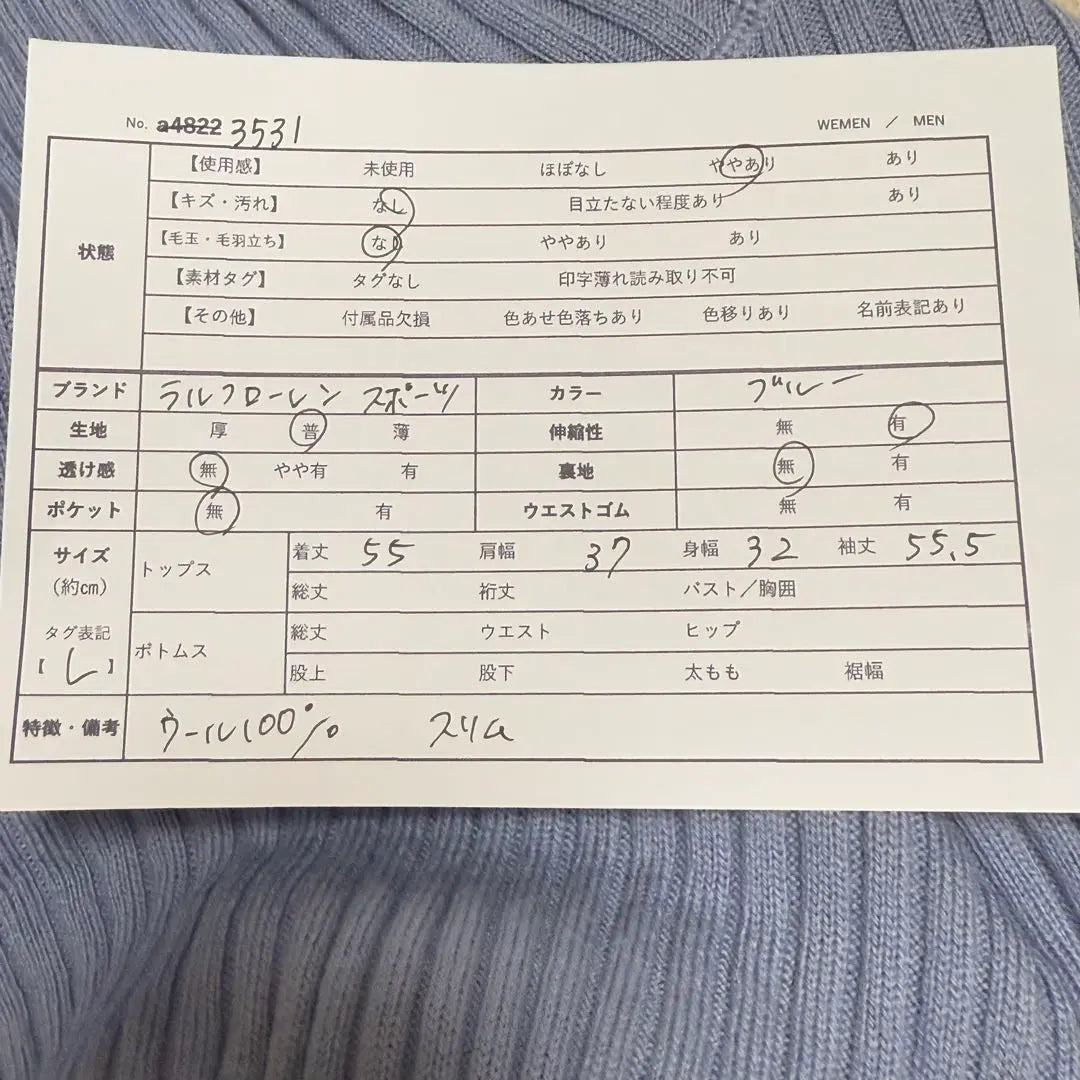 No. a4822 3531 WEMEN / MEN
状態
【使用感】 未使用 ほぼなし ややあり あり
【キズ・汚れ】 なし 目立たない程度あり あり
【毛玉・毛羽立ち】 なし ややあり あり
【素材タグ】 タグなし 印字薄れ読み取り不可
【その他】 付属品欠損 色あせ色落ちあり 色移りあり 名前表記あり
ブランド ラルフローレン スポーツ カラー ブルー
生地 厚 普 薄 伸縮性 無 有
透け感 無 やや有 有 裏地 無 有
ポケット 無 有 ウエストゴム 無 有
サイズ (約cm) トップス 着丈 55 肩幅 37 身幅 32 袖丈 55.5
総丈 裄丈 バスト／胸囲
タグ表記 【 L 】 ボトムス 総丈 ウエスト ヒップ
股上 股下 太もも 裾幅
特徴・備考 ウール100% スリム